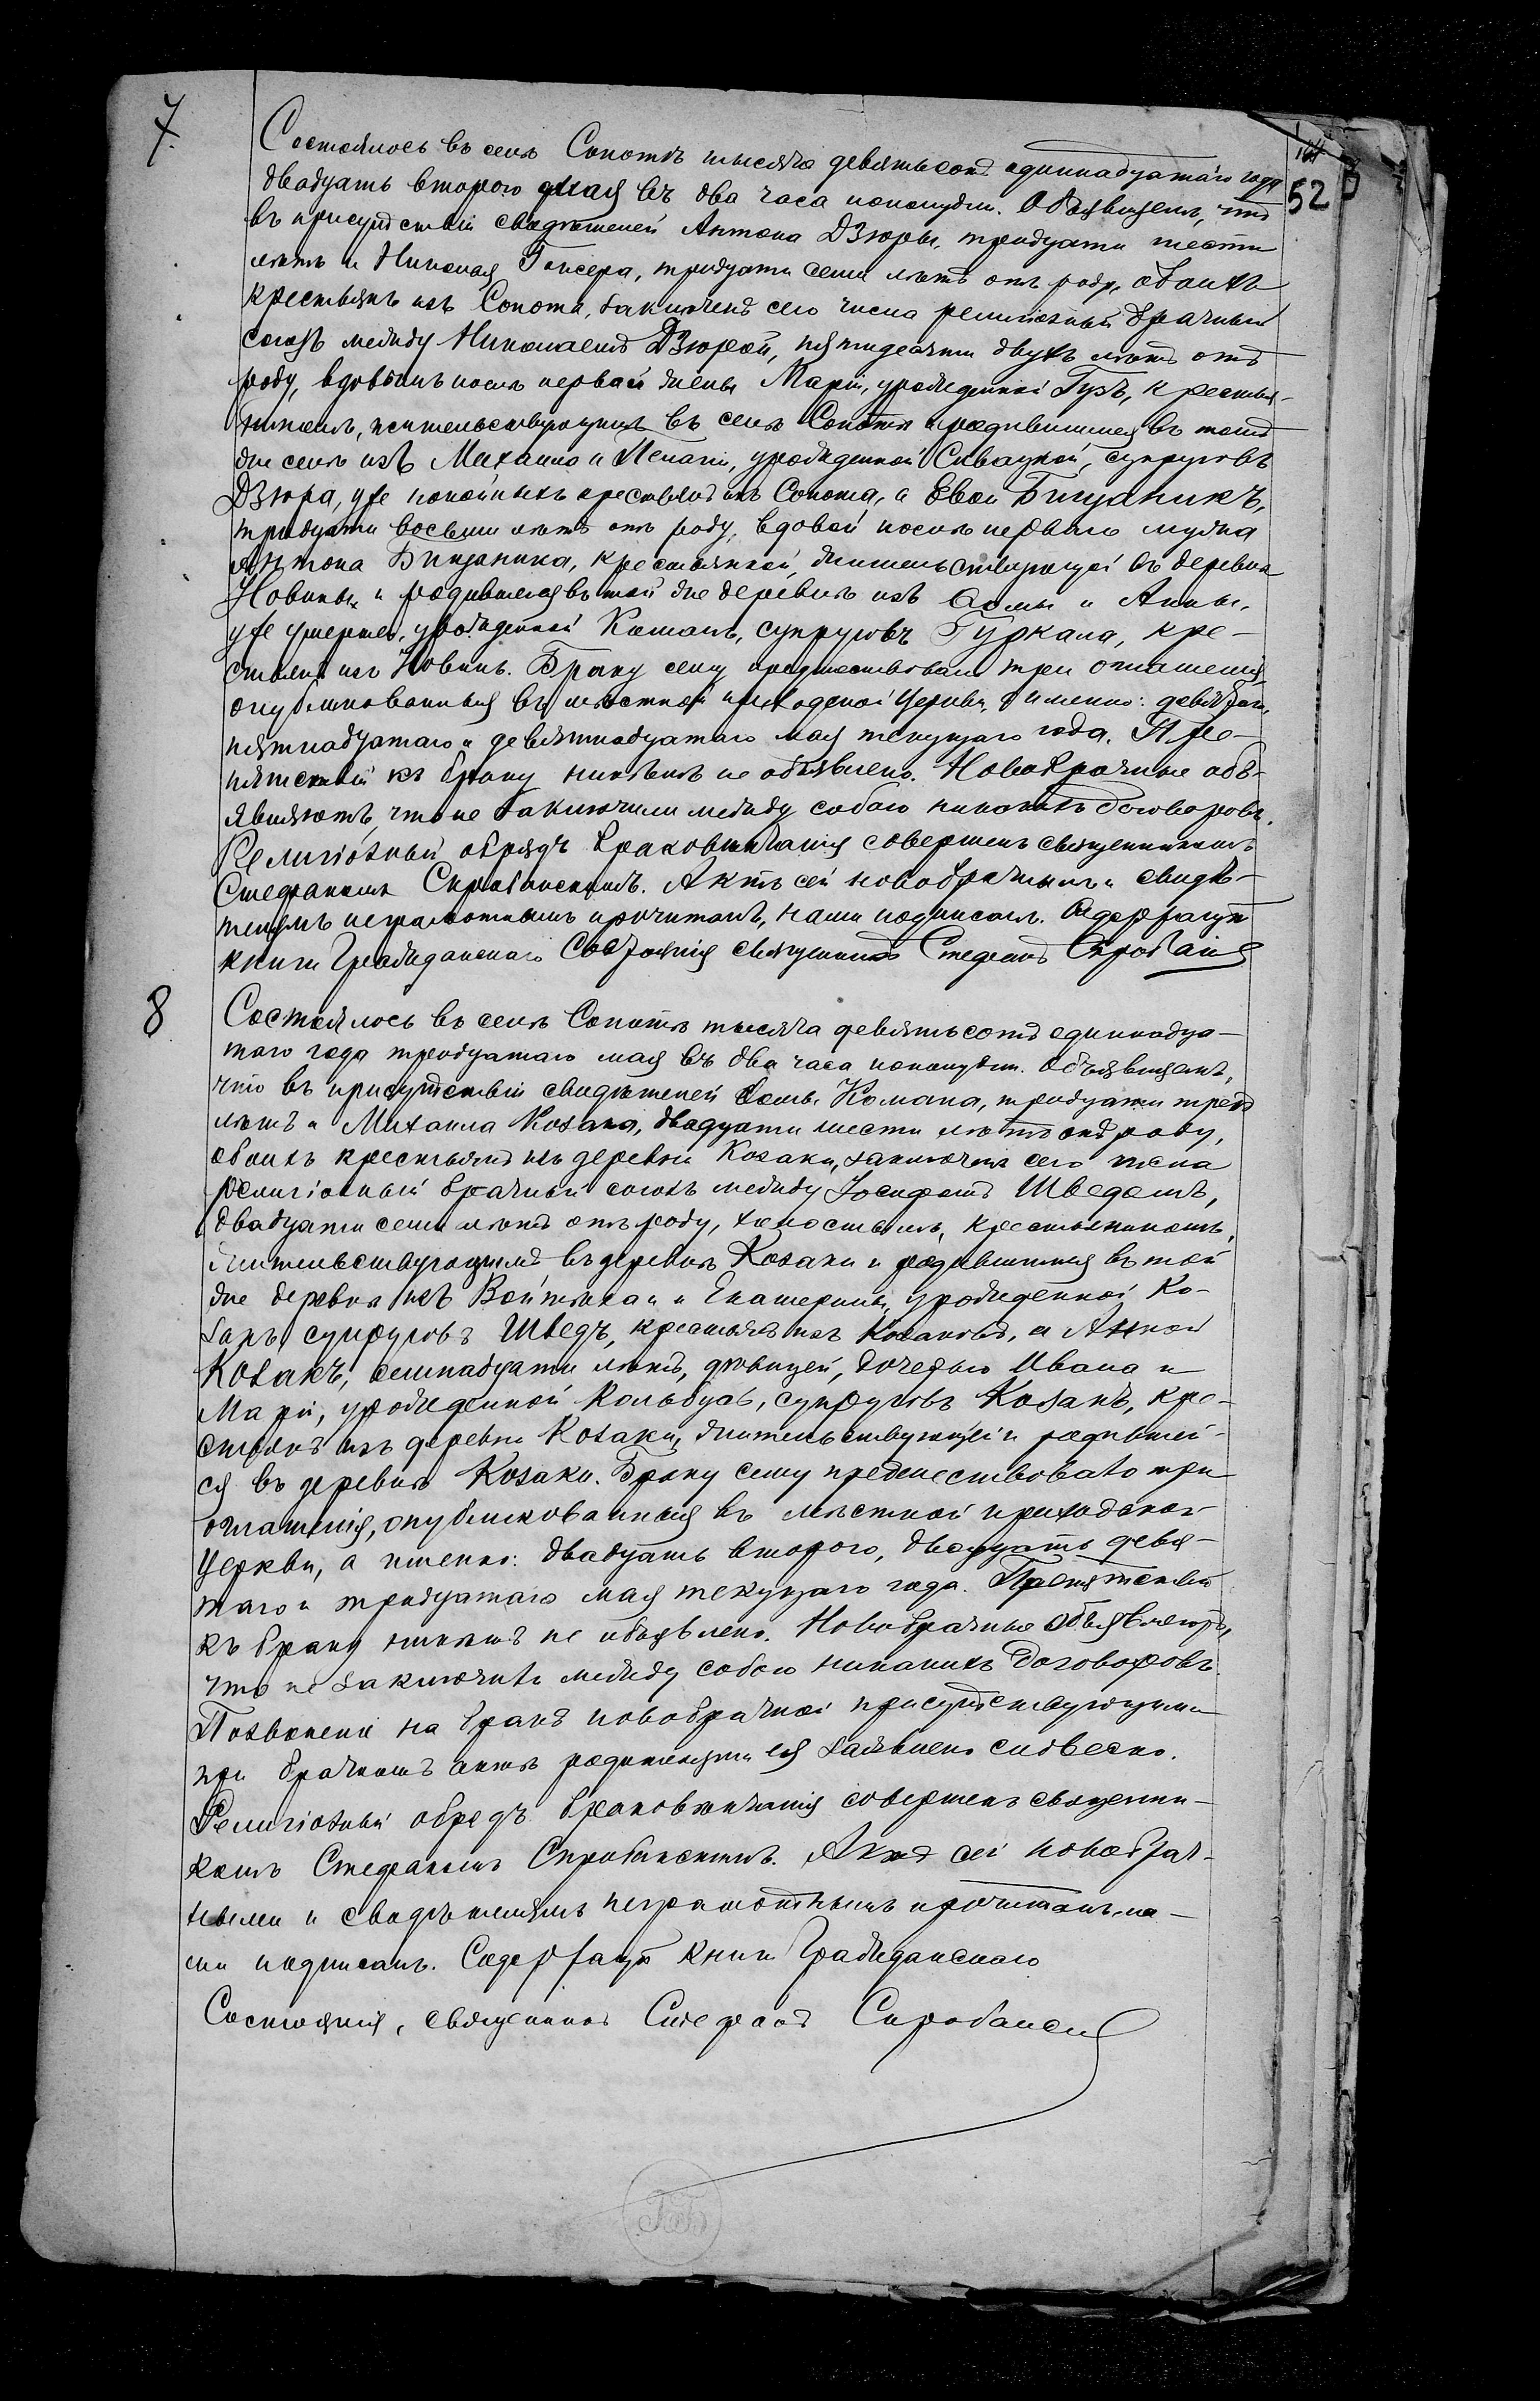 7.
Состоялось въ селѣ Сопотѣ тысяча девятьсотъ одиннадцатаго года
52
двадцать второго мая въ два часа пополудни. Объявляемъ, что
въ присутствіи свидѣтелей Антона Дзюры, тридцати шести
лѣтъ и Николая Гонсера, тридцати семи лѣтъ отъ роду, обоихъ
крестьянъ изъ Сопота, заключенъ сего числа религіозный брачный
союзъ между Николаемъ Дзюрой, пятидесяти двухъ лѣтъ отъ
роду, вдовцомъ послѣ первой жены Маріи, урожденной Гузъ, крестья-
ниномъ, жительствующимъ въ селѣ Сопотѣ и родившимся въ томъ
же селѣ изъ Михаила и Пелагіи, урожденной супруговъ
Дзюра, уже покойныхъ крестьянъ изъ Сопота, и Евой Бицаникъ,
тридцати восьми лѣтъ отъ роду, вдовой послѣ перваго мужа
Антона Бицаника, крестьянкой, жительствующей въ деревнѣ
Новины и родившейся въ той же деревнѣ изъ Ѳомы и Анны,
уже умершей, урожденной супруговъ Гуркала, кре-
стьянъ изъ Новинъ. Браку сему предшествовали три оглашенія,
опубликованныя въ мѣстной приходской церкви, а именно: девятаго,
пятнадцатаго и девятнадцатаго мая текущаго года. Пре-
пятствій къ браку никѣмъ не объявлено. Новобрачные объ-
являютъ, что не заключили между собою никакихъ договоровъ.
Религіозный обрядъ браковѣнчанія совершенъ священникомъ
Стефаномъ Скробанскимъ. Актъ сей новобрачнымъ и свидѣ-
телямъ неграмотнымъ прочитанъ, нами подписанъ. Содержащій
книги Гражданскаго Состоянія священникъ Стефанъ
8
Состоялось въ селѣ Сопотѣ тысяча девятьсотъ одиннадца-
таго года тридцатаго мая въ два часа пополудни. Объявляемъ,
что въ присутствіи свидѣтелей Ѳомы Комана, тридцати трехъ
лѣтъ и Михаила Козака, двадцати шести лѣтъ отъ роду,
обоихъ крестьянъ изъ деревни Козаки, заключенъ сего числа
религіозный брачный союзъ между Іосифомъ Шведомъ,
двадцати семи лѣтъ отъ роду, холостымъ, крестьяниномъ,
жительствующимъ въ деревнѣ Козаки и родившимся въ той
же деревнѣ изъ Войтѣха и Екатерины, урожденной Ко-
закъ, супруговъ Шведъ, крестьянъ изъ Козаковъ, и Анной
Козакъ, семнадцати лѣтъ, дѣвицей, дочерью Ивана и
Маріи, урожденной Кольбусъ, супруговъ Козакъ, кре-
стьянъ изъ деревни Козаки, жительствующей и родившей-
ся въ деревнѣ Козаки. Браку сему предшествовало три
оглашенія, опубликованныя въ мѣстной приходской
церкви, а именно: двадцать второго, двадцать девя-
таго и тридцатаго мая текущаго года. Препятствій
къ браку никѣмъ не объявлено. Новобрачные объявляютъ,
что не заключили между собою никакихъ договоровъ.
Позволеніе на бракъ новобрачной присутствующими
при брачномъ актѣ родителями ея заявлено словесно.
Религіозный обрядъ браковѣнчанія совершенъ священни-
комъ Стефаномъ Скробанскимъ. Актъ сей новобрач-
нымъ и свидѣтелямъ неграмотнымъ прочитанъ, на-
ми подписанъ. Содержащій книги Гражданскаго
Состоянія, священникъ Стефанъ